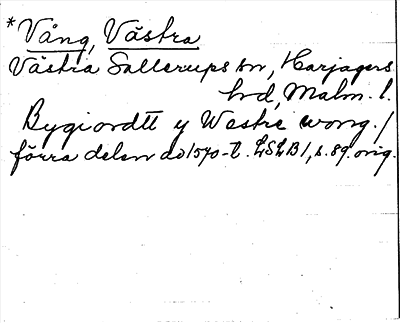 *Vång, Västra
Västra Sallerups sn, Harjagers
hrd, Malm. l.
Bygiordtt y Westre wong. /
förra delen av 1570-t. LSLB 1, s. 89. orig.